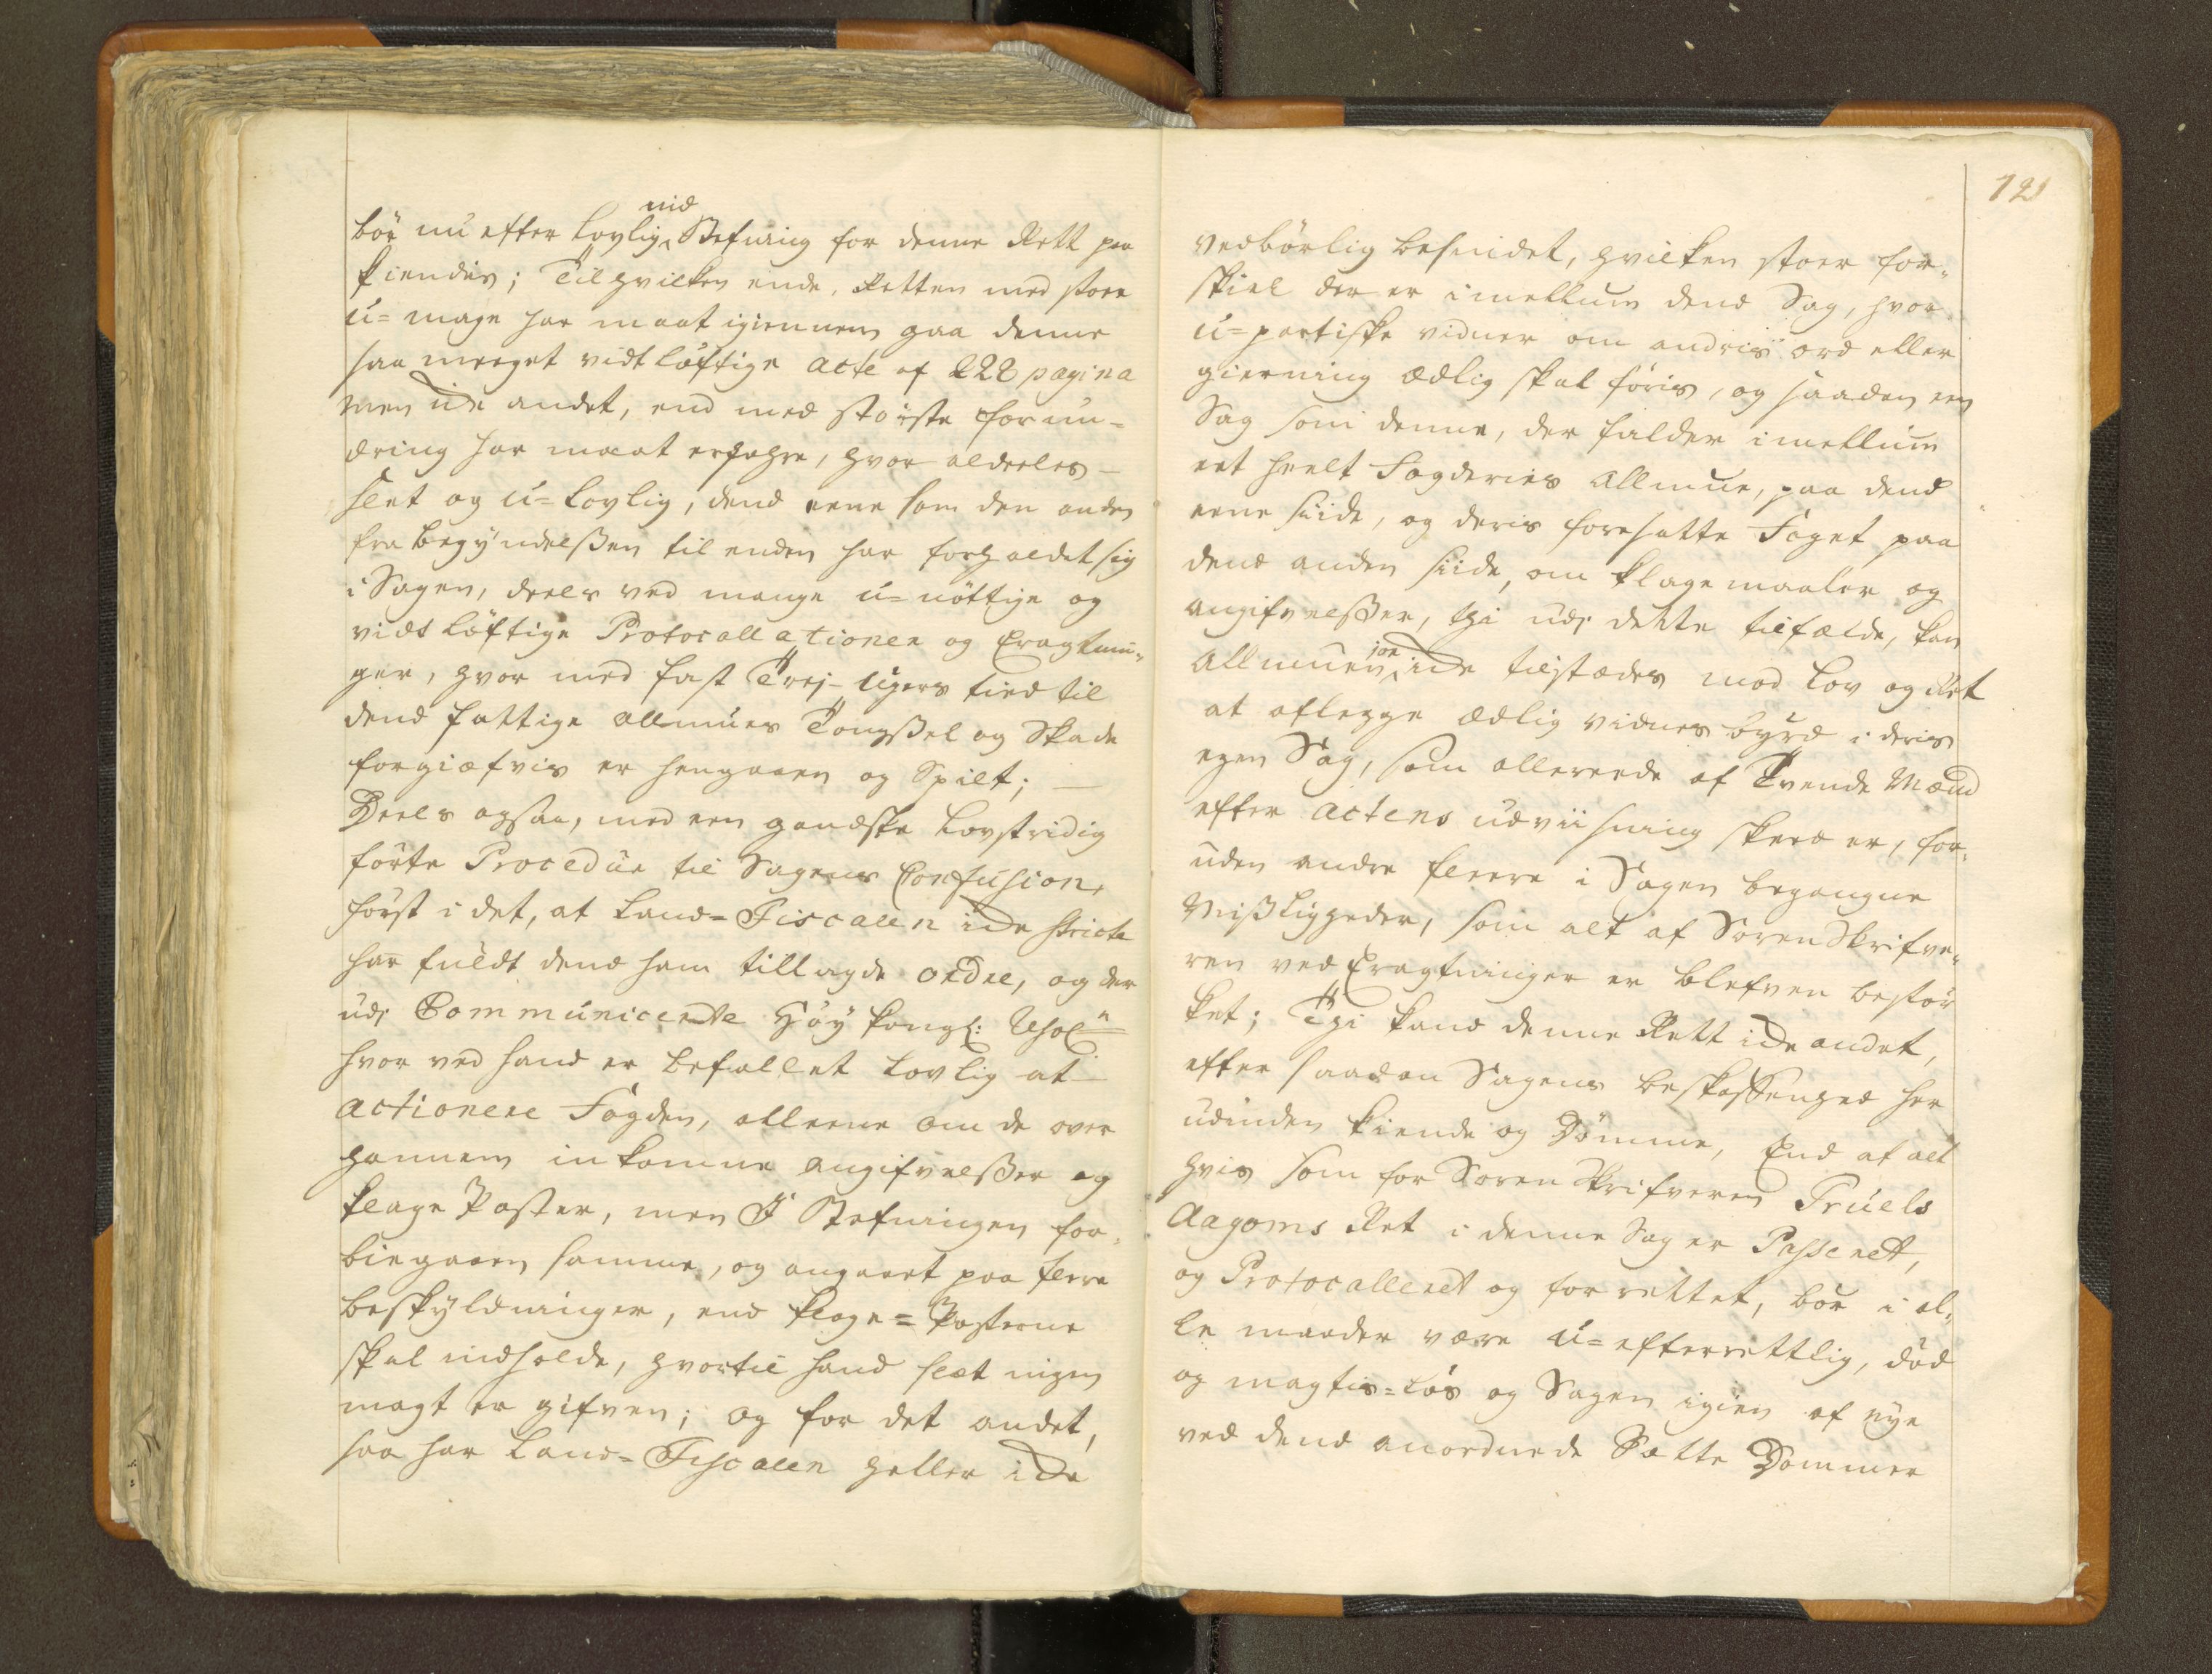 bör nu efter Lovlig nid Stefning for denne Rett paa
kiendis; Til hvilken ende, Retten med stoer
u=mage har maat igiennem gaa denne
saa meeget vidtløftige acte af 228 pagina
men icke andet, end med störste forun=
dring har maat erfahre, hvor aldeeles
slet og u=Lovlig, dend eene som den anden
fra begÿndelßen til enden har forholdet sig
i Sagen, deels ved mange u=nöttige og
vidtlöftige Protocallationer og Eragtnin=
ger, hvor med fast Trej-Ugers tied til
dend fattige allmues Tongßel og Skade
forgiæfvis er hengaaen og Spilt;
Deels ogsaa, med een gandske Lovstridig
förte Procedur til Sagens Confusion,
först i det, at Land=Fiscalen icke stricte
har fuldt dend ham tillagde ordre, og der
udj Communicerte Höÿ kongl: Resol:n
hvor ved hand er befallet Lovlig at
actionere Fogden, alleene om de over
hannem inkomne angifvelßer og
klage Poster, men I Stefningen for=
biegaaen samme, og angaaet paa flere
beskÿldninger, end klage=Posterne
skal indholde, hvortil hand slet ingen
magt er gifven; og for det andet,
saa har Land=Fiscalen heller icke
121
vedbörlig besindet, hvilken stoer for=
skiel der er imellum dend Sag, hvor
u=partiske vidner om andris ord eller
gierning Ædlig skal føris, og saadan een
Sag som denne, der falder imellum
eet heelt Fogderies Allmue, paa dend
eene siide, og deris foresatte Foget paa
dend anden siide, om klagemaaler og
angifvelßer, thi udj dette tilfælde, kan
Allmuen jo icke tilstædes mod Lov og Ret
at aflegge Ædlig vidnesbyrd i deris
egen Sag, som allereede af Tvende Mænd
efter actens udviisning skeed er, for=
uden andre fleere i Sagen begangne
Mißligheder, som alt af Sorenskrifve=
ren ved Eragtninger er blefven bestÿr
ket; Thi kand denne Rett icke andet,
efter saadan Sagens beskaffenhed her
udinden kiende og Dömme, End at alt
hvis som for Sorenskrifveren Truels
Aagoms Ret i denne Sag er Passeret,
og Protocalleret og forrettet, bör i al=
le maader være u=efterrettlig, död
og magtis=Lös og Sagen igien af nÿe
ved dend anordnede Sætte Dommer